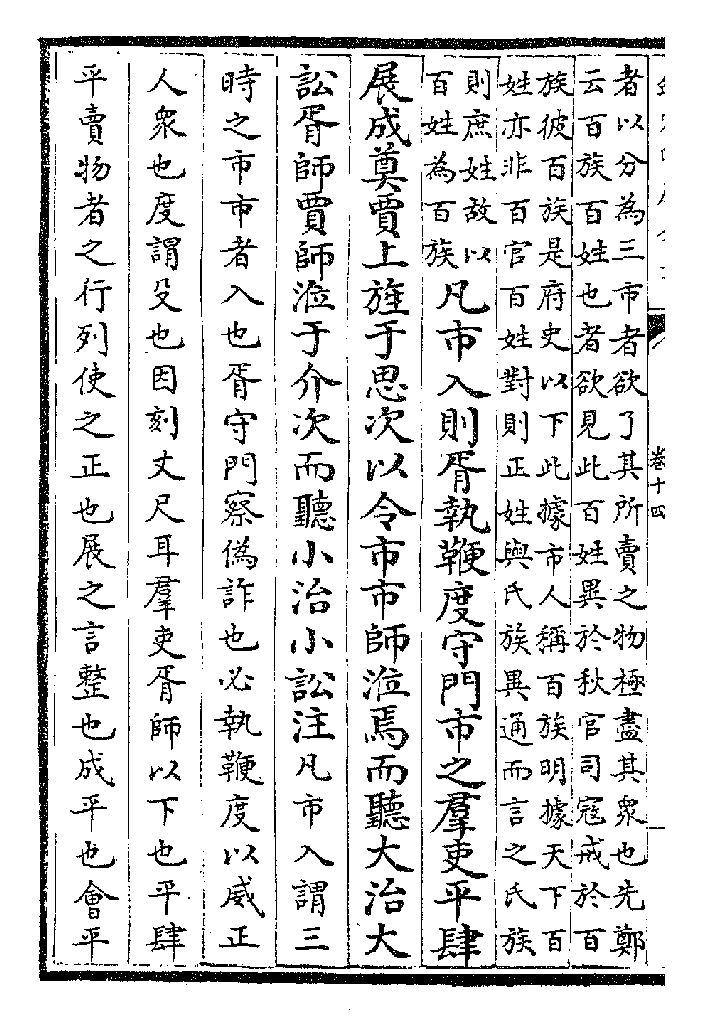 卷十四
者以分為三市者欲了其所賣之物極盡其衆也先鄭
云百族百姓也者欲見此百姓異於秋官司寇戒於百
族彼百族是府史以下此據市人稱百族明據天下百
姓亦非百官百姓對則正姓與氏族異通而言之氏族
則庶姓故以
百姓為百族
凡市入則胥執鞭度守門市之羣吏平肆
展成奠賈上旌于思次以令市市師涖焉而聽大治大
訟胥師賈師涖于介次而聽小治小訟注凡市入謂三
時之市市者入也胥守門察偽詐也必執鞭度以威正
人衆也度謂殳也因刻丈尺耳羣吏胥師以下也平肆
平賣物者之行列使之正也展之言整也成平也會平